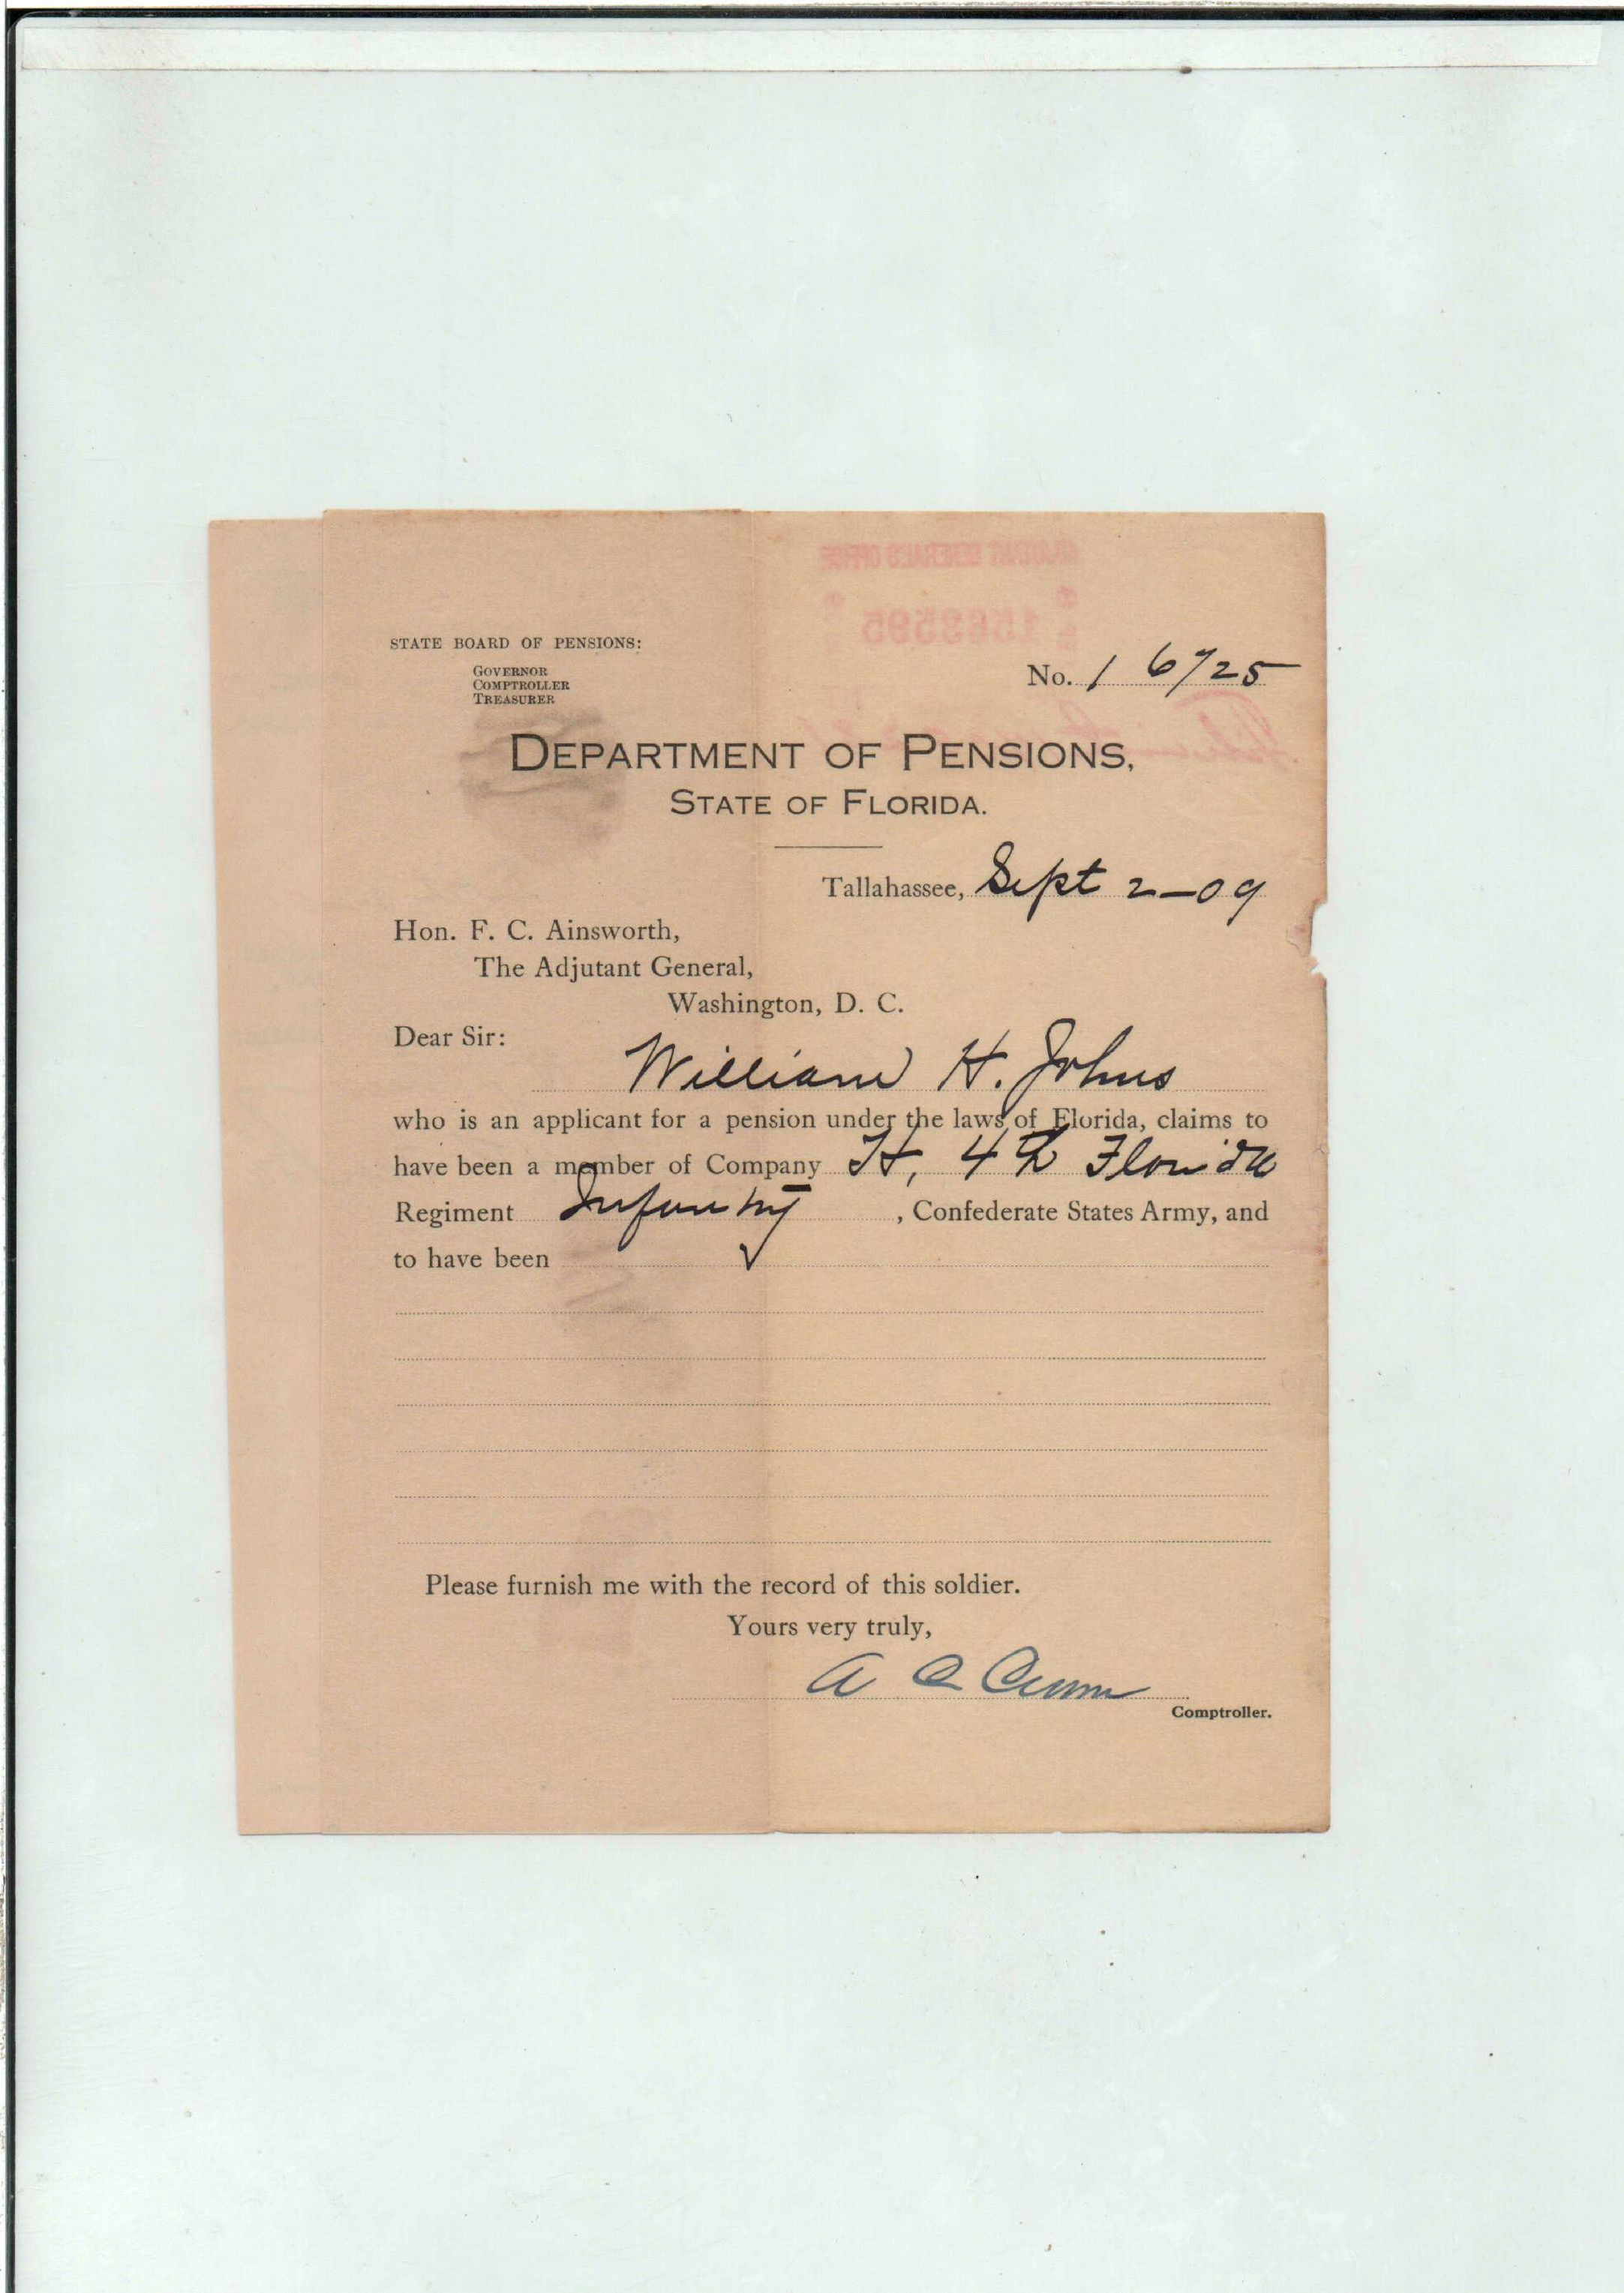 STATE BOARD OF PENSIONS:
GOVERNOR
COMPTROLLER
TREASURER
No. 1 6725
DEPARTMENT OF PENSIONS,
STATE OF FLORIDA.
Tallahassee, Sept 2-09
Hon. F. C. Ainsworth,
The Adjutant General,
Washington, D. C.
Dear Sir:
William H. Johns
who is an applicant for a pension under the laws of Florida, claims to
have been a member of Company H, 4th Florida
Regiment Infantry, Confederate States Army, and
to have been
Please furnish me with the record of this soldier.
Yours very truly,
A C Croom
Comptroller.